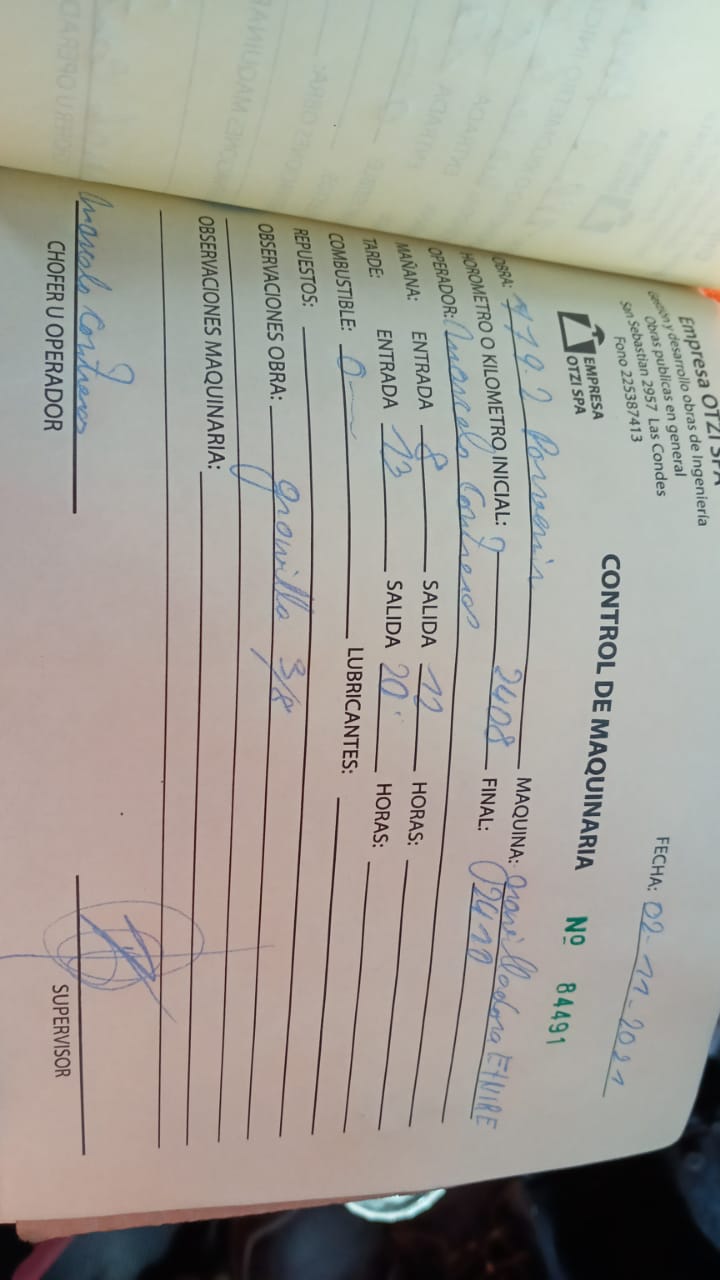 Empresa OTZI SPA
Gestion y desarrollo obras de Ingeniería
Obras publicas en general
San Sebastian 2957 Las Condes
Fono 225387413
FECHA: 02-11-2021
EMPRESA
OTZI SPA
CONTROL DE MAQUINARIA Nº 84491
OBRA: 479-2 Porvenir MAQUINA: Gravilladora ETNIRE
HOROMETRO O KILOMETRO INICIAL: 2408 FINAL: 2410
OPERADOR: Marcelo Contreras
MAÑANA: ENTRADA 8 SALIDA 12 HORAS:
TARDE: ENTRADA 13 SALIDA 20 HORAS:
COMBUSTIBLE: 0 LUBRICANTES:
REPUESTOS:
OBSERVACIONES OBRA: gravilla 3/8
OBSERVACIONES MAQUINARIA:
Marcelo Contreras
CHOFER U OPERADOR SUPERVISOR